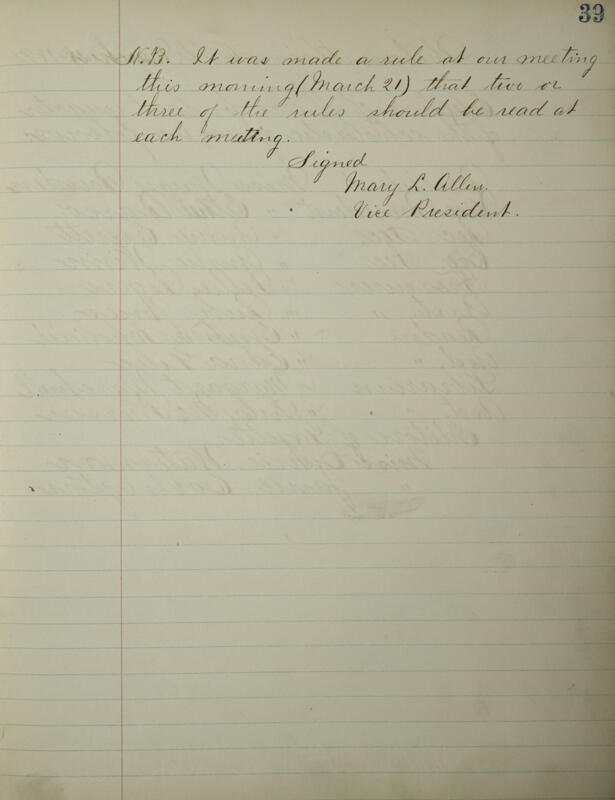 39
N.B. It was made a rule at our meeting
this morning (March 21) that two or
three of the rules should be read at
each meeting.
Signed
Mary L. Allen.
Vice President.